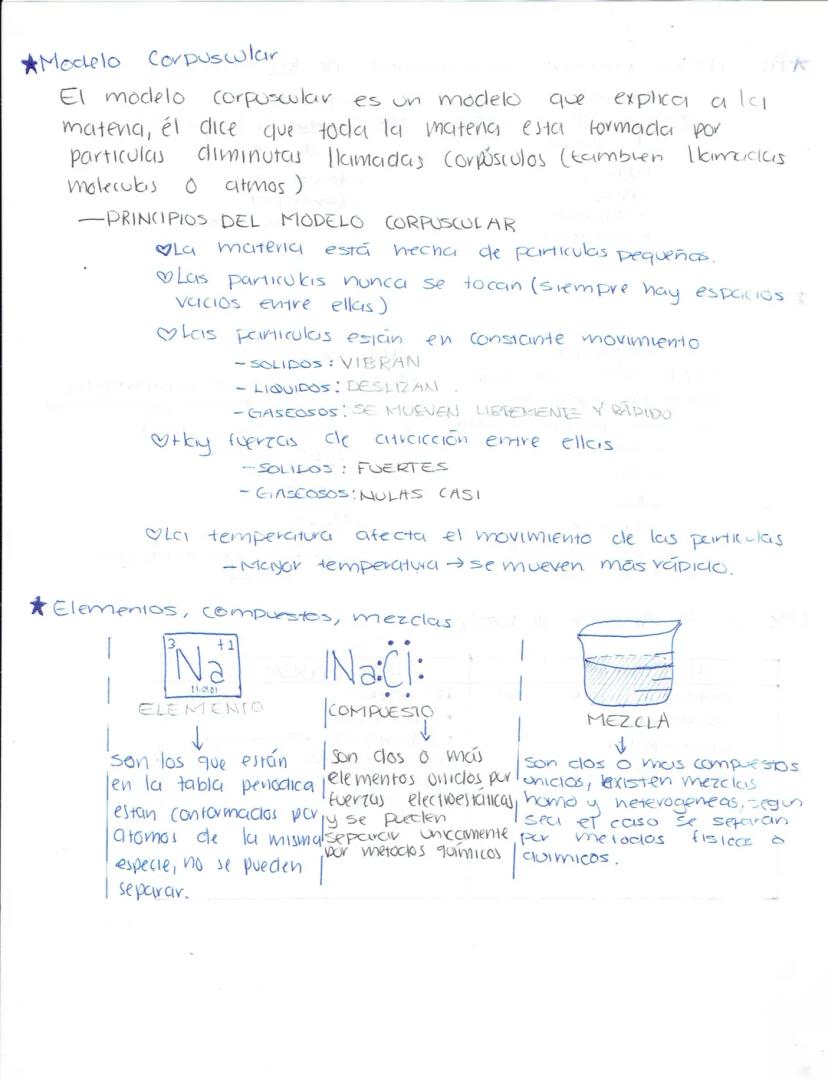 ★Modelo Corpuscular
El modelo corpuscular es un modelo que explica a la
materia, él dice que toda la materia esta formada por
particulas diminutas llamadas corpúsculos (tambien llamadas
moleculas o atmos)
—PRINCIPIOS DEL MODELO CORPUSCULAR
♡La materia está hecha de particulas pequeñas.
♡Las particulas nunca se tocan (siempre hay espacios
vacios entre ellas)
♡Las particulas están en constante movimiento
-SOLIDOS: VIBRAN
- LIQUIDOS: DESLIZAN.
-GASEOSOS: SE MUEVEN LIBREMENTE Y RÁPIDO
♡Hay fuerzas de atracción entre ellas
-SOLIDOS: FUERTES
- GASEOSOS: NULAS CASI
♡La temperatura afecta el movimiento de las particulas
-Mayor temperatura → se mueven mas rápido.
★Elementos, compuestos, mezclas
3 +1
Na
11.0101
ELEMENTO
Son los que están
en la tabla periodica
estan conformados por
atomos de la misma
especie, no se pueden
separar.
Na:Cl:
COMPUESTO
Son dos o más
elementos unidos por
fuerzas electroestánicas
y se pueden
separar unicamente
por metodos químicos
MEZCLA
son dos o mas compuestos
unidos, existen mezclas
homo y heterogeneas, segun
sea el caso se separan
por metodos fisicos o
quimicos.